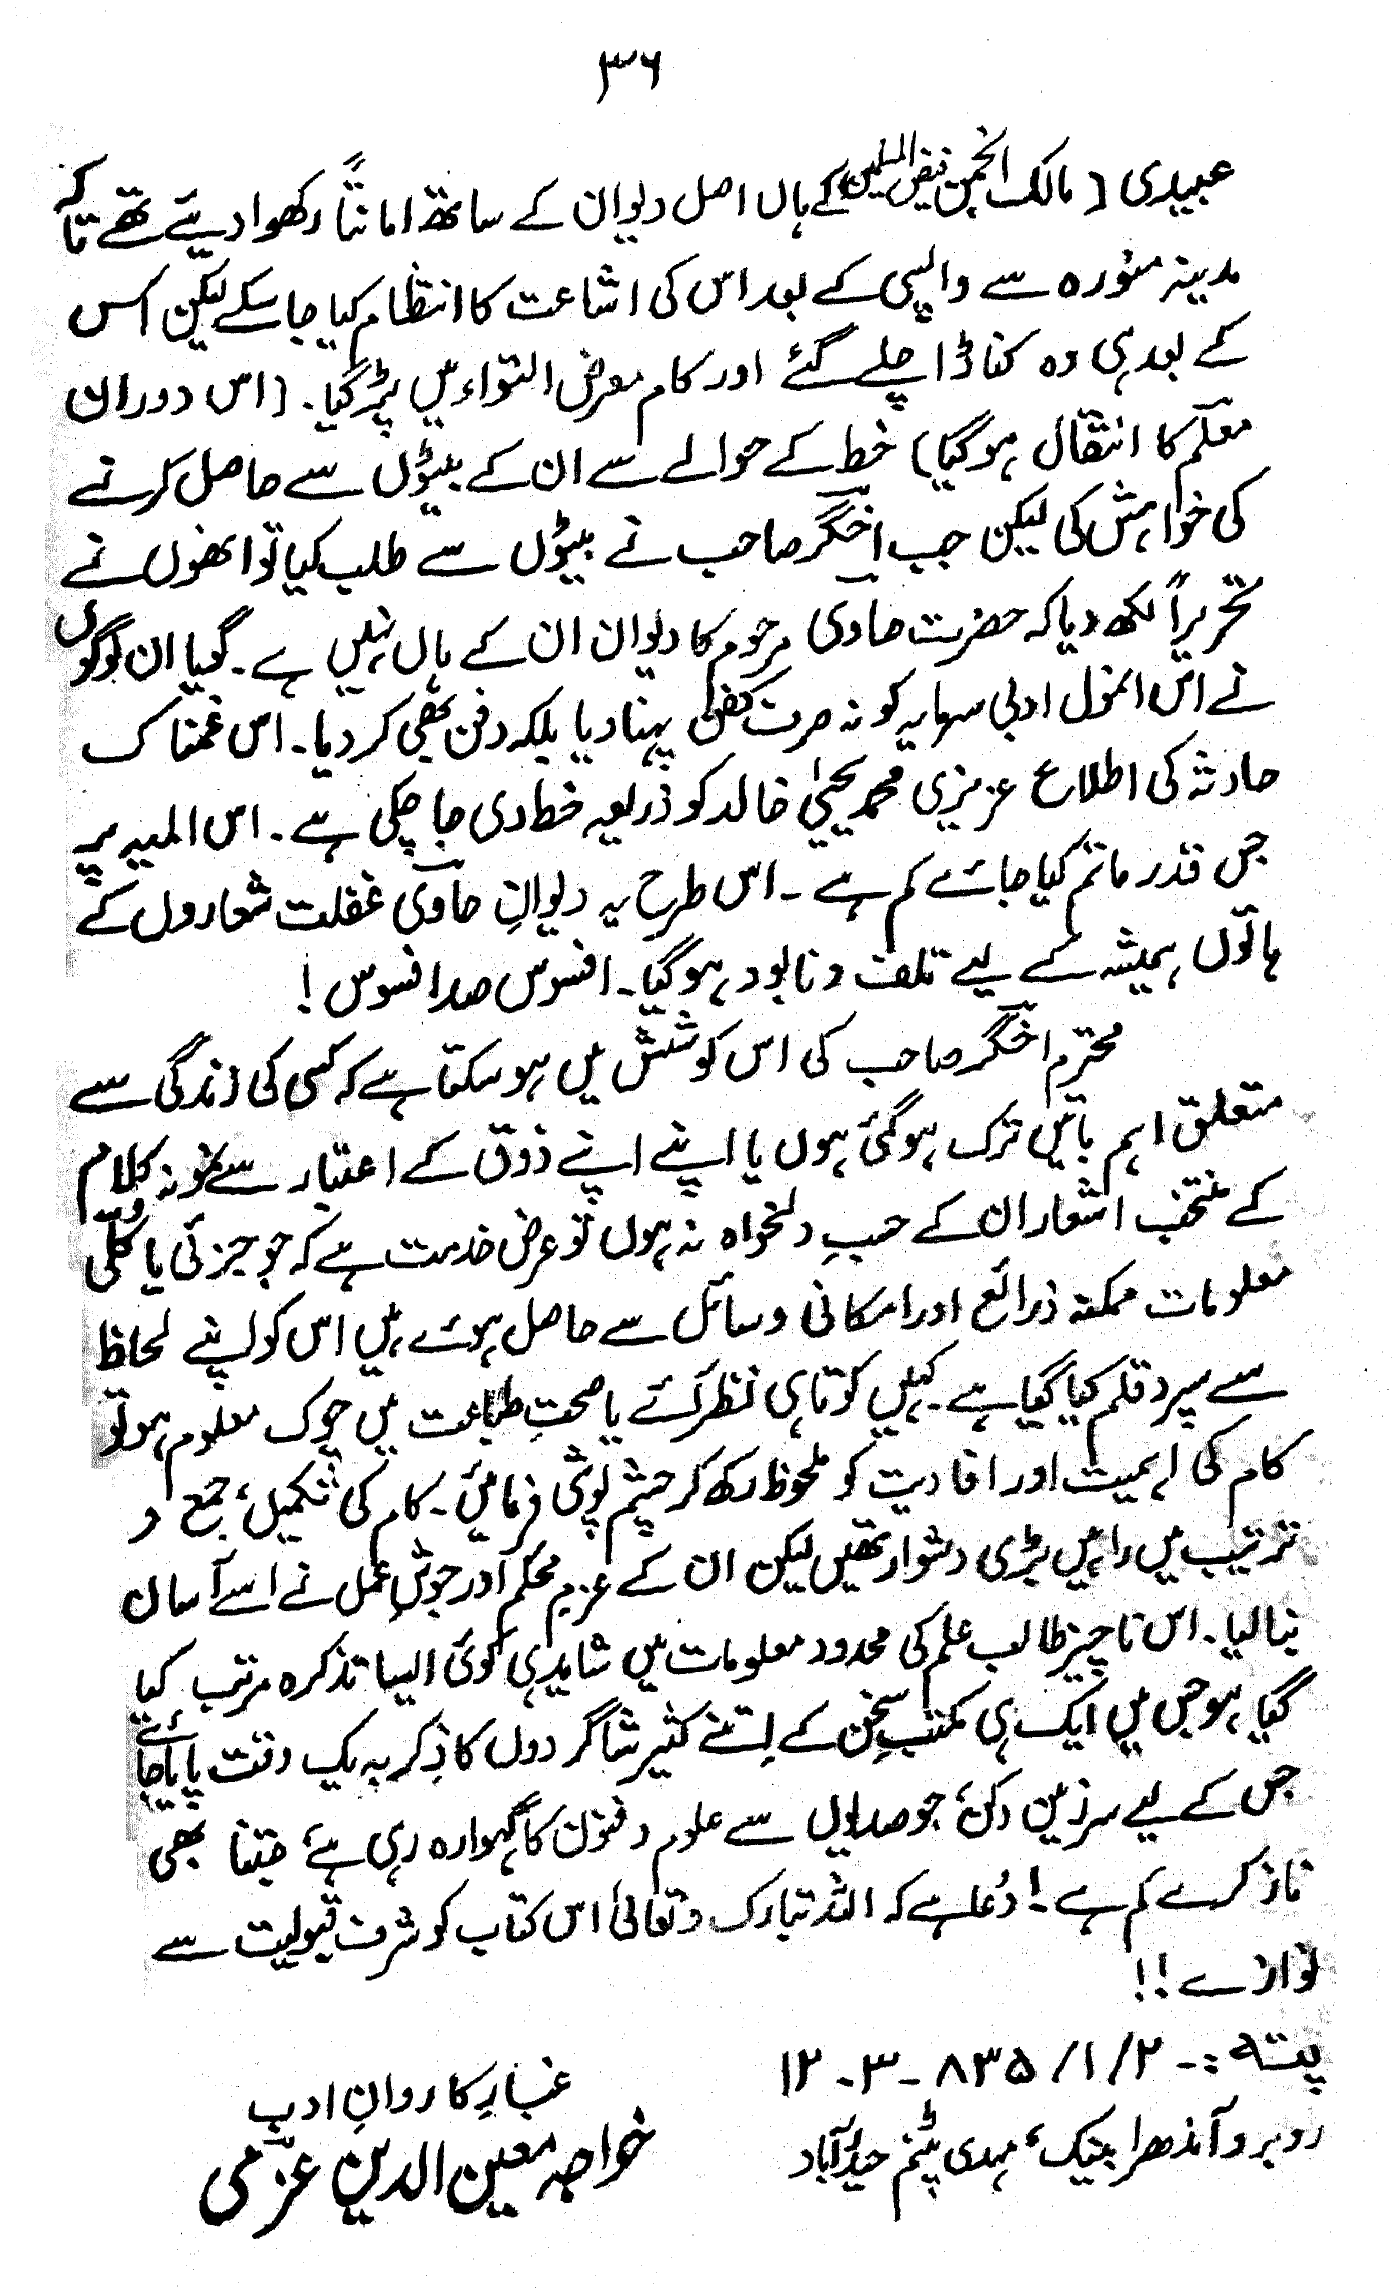 ۳۶
عبیدی (مالک انجمن فیض المسلمین) کے ہاں اصل دیوان کے ساتھ امانتاً رکھوا دیئے تھے تا کہ
مدینہ منورہ سے واپسی کے بعد اس کی اشاعت کا انتظام کیا جا سکے لیکن اس
کے بعد ہی وہ کناڈا چلے گئے اور کام معرض التواء میں پڑ گیا۔ (اس دوران
معلم کا انتقال ہو گیا) خط کے حوالے سے ان کے بیٹوں سے حاصل کرنے
کی خواہش کی لیکن جب اخگر صاحب نے بیٹوں سے طلب کیا تو انھوں نے
تحریراً لکھ دیا کہ حضرت حاوی مرحوم کا دیوان ان کے ہاں نہیں ہے۔ گویا ان لوگوں
نے اس انمول ادبی سرمایہ کو نہ صرف کفن پہنا دیا بلکہ دفن بھی کر دیا۔ اس غمناک
حادثہ کی اطلاع عزیزی محمد یحییٰ خالد کو ذریعہ خط دی جا چکی ہے۔ اس المیہ پر
جس قدر ماتم کیا جائے کم ہے۔ اس طرح یہ دیوانِ حاوی غفلت شعاروں کے
ہاتوں ہمیشہ کے لیے تلف و نابود ہو گیا۔ افسوس صد افسوس!
محترم اخگر صاحب کی اس کوشش میں ہو سکتا ہے کہ کسی کی زندگی سے
متعلق اہم باتیں ترک ہو گئی ہوں یا اپنے اپنے ذوق کے اعتبار سے نمونہ کلام
کے منتخب اشعار ان کے حسبِ دلخواہ نہ ہوں تو عرض خدمت ہے کہ جو جزئی یا کلی
معلومات ممکنہ ذرائع اور امکانی وسائل سے حاصل ہوئے ہیں اس کو اپنے لحاظ
سے سپرد قلم کیا گیا ہے۔ کہیں کوتاہی نظر آئے یا صحتِ طباعت میں چوک معلوم ہو تو
کام کی اہمیت اور افادیت کو ملحوظ رکھ کر چشم پوشی فرمائیں۔ کام کی تکمیل، جمع و
ترتیب میں راہیں بڑی دشوار تھیں لیکن ان کے عزم محکم اور جوشِ عمل نے اسے آسان
بنا لیا۔ اس ناچیز طالب علم کی محدود معلومات میں شاید ہی کوئی ایسا تذکرہ مرتب کیا
گیا ہو جس میں ایک ہی مکتبِ سخن کے اِتنے کثیر شاگردوں کا ذِکر بہ یک وقت پایا جائے
جس کے لیے سرزمین دکن، جو صدیوں سے علوم و فنون کا گہوارہ رہی ہے، جتنا بھی
ناز کرے کم ہے! دُعا ہے کہ اللہ تبارک و تعالیٰ اس کتاب کو شرف قبولیت سے
نوازے!!
پتہ :- ۱۲-۳-۸۳۵/۱/۲
روبرو آندھرا بینک، مہدی پٹنم حیدرآباد
غبارِ کاروانِ ادب
خواجہ معین الدین عزمی